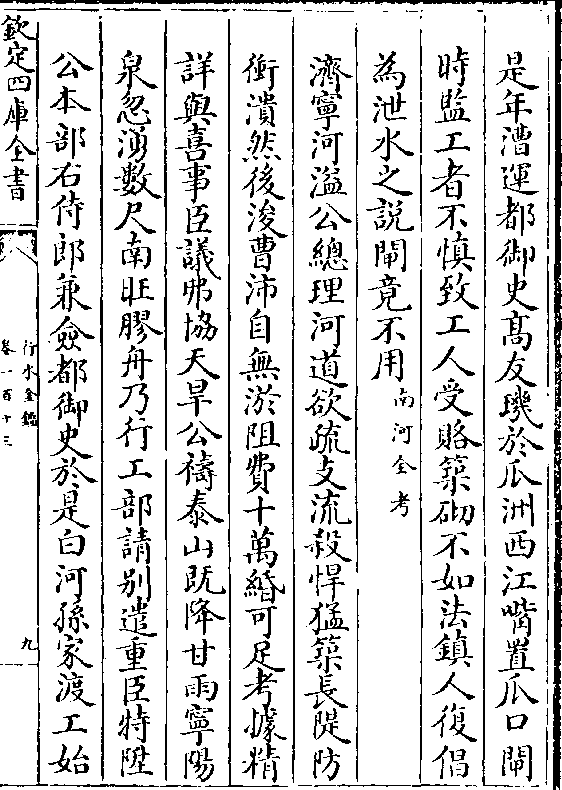 是年漕運都御史高友璣於瓜洲西江嘴置瓜口閘
時監工者不慎致工人受賂築砌不如法鎮人復倡
為泄水之說閘竟不用南河全考
濟寧河溢公總理河道欲疏支流殺悍猛築長隄防
衝潰然後浚曹沛自無淤阻費十萬緡可足考據精
詳與喜事臣議弗協天旱公禱泰山既降甘雨寧陽
泉忽湧數尺南旺膠舟乃行工部請别遣重臣特陞
公本部右侍郎兼僉都御史於是白河孫家渡工始
欽定四庫全書
行水金鑑
卷一百十三
九